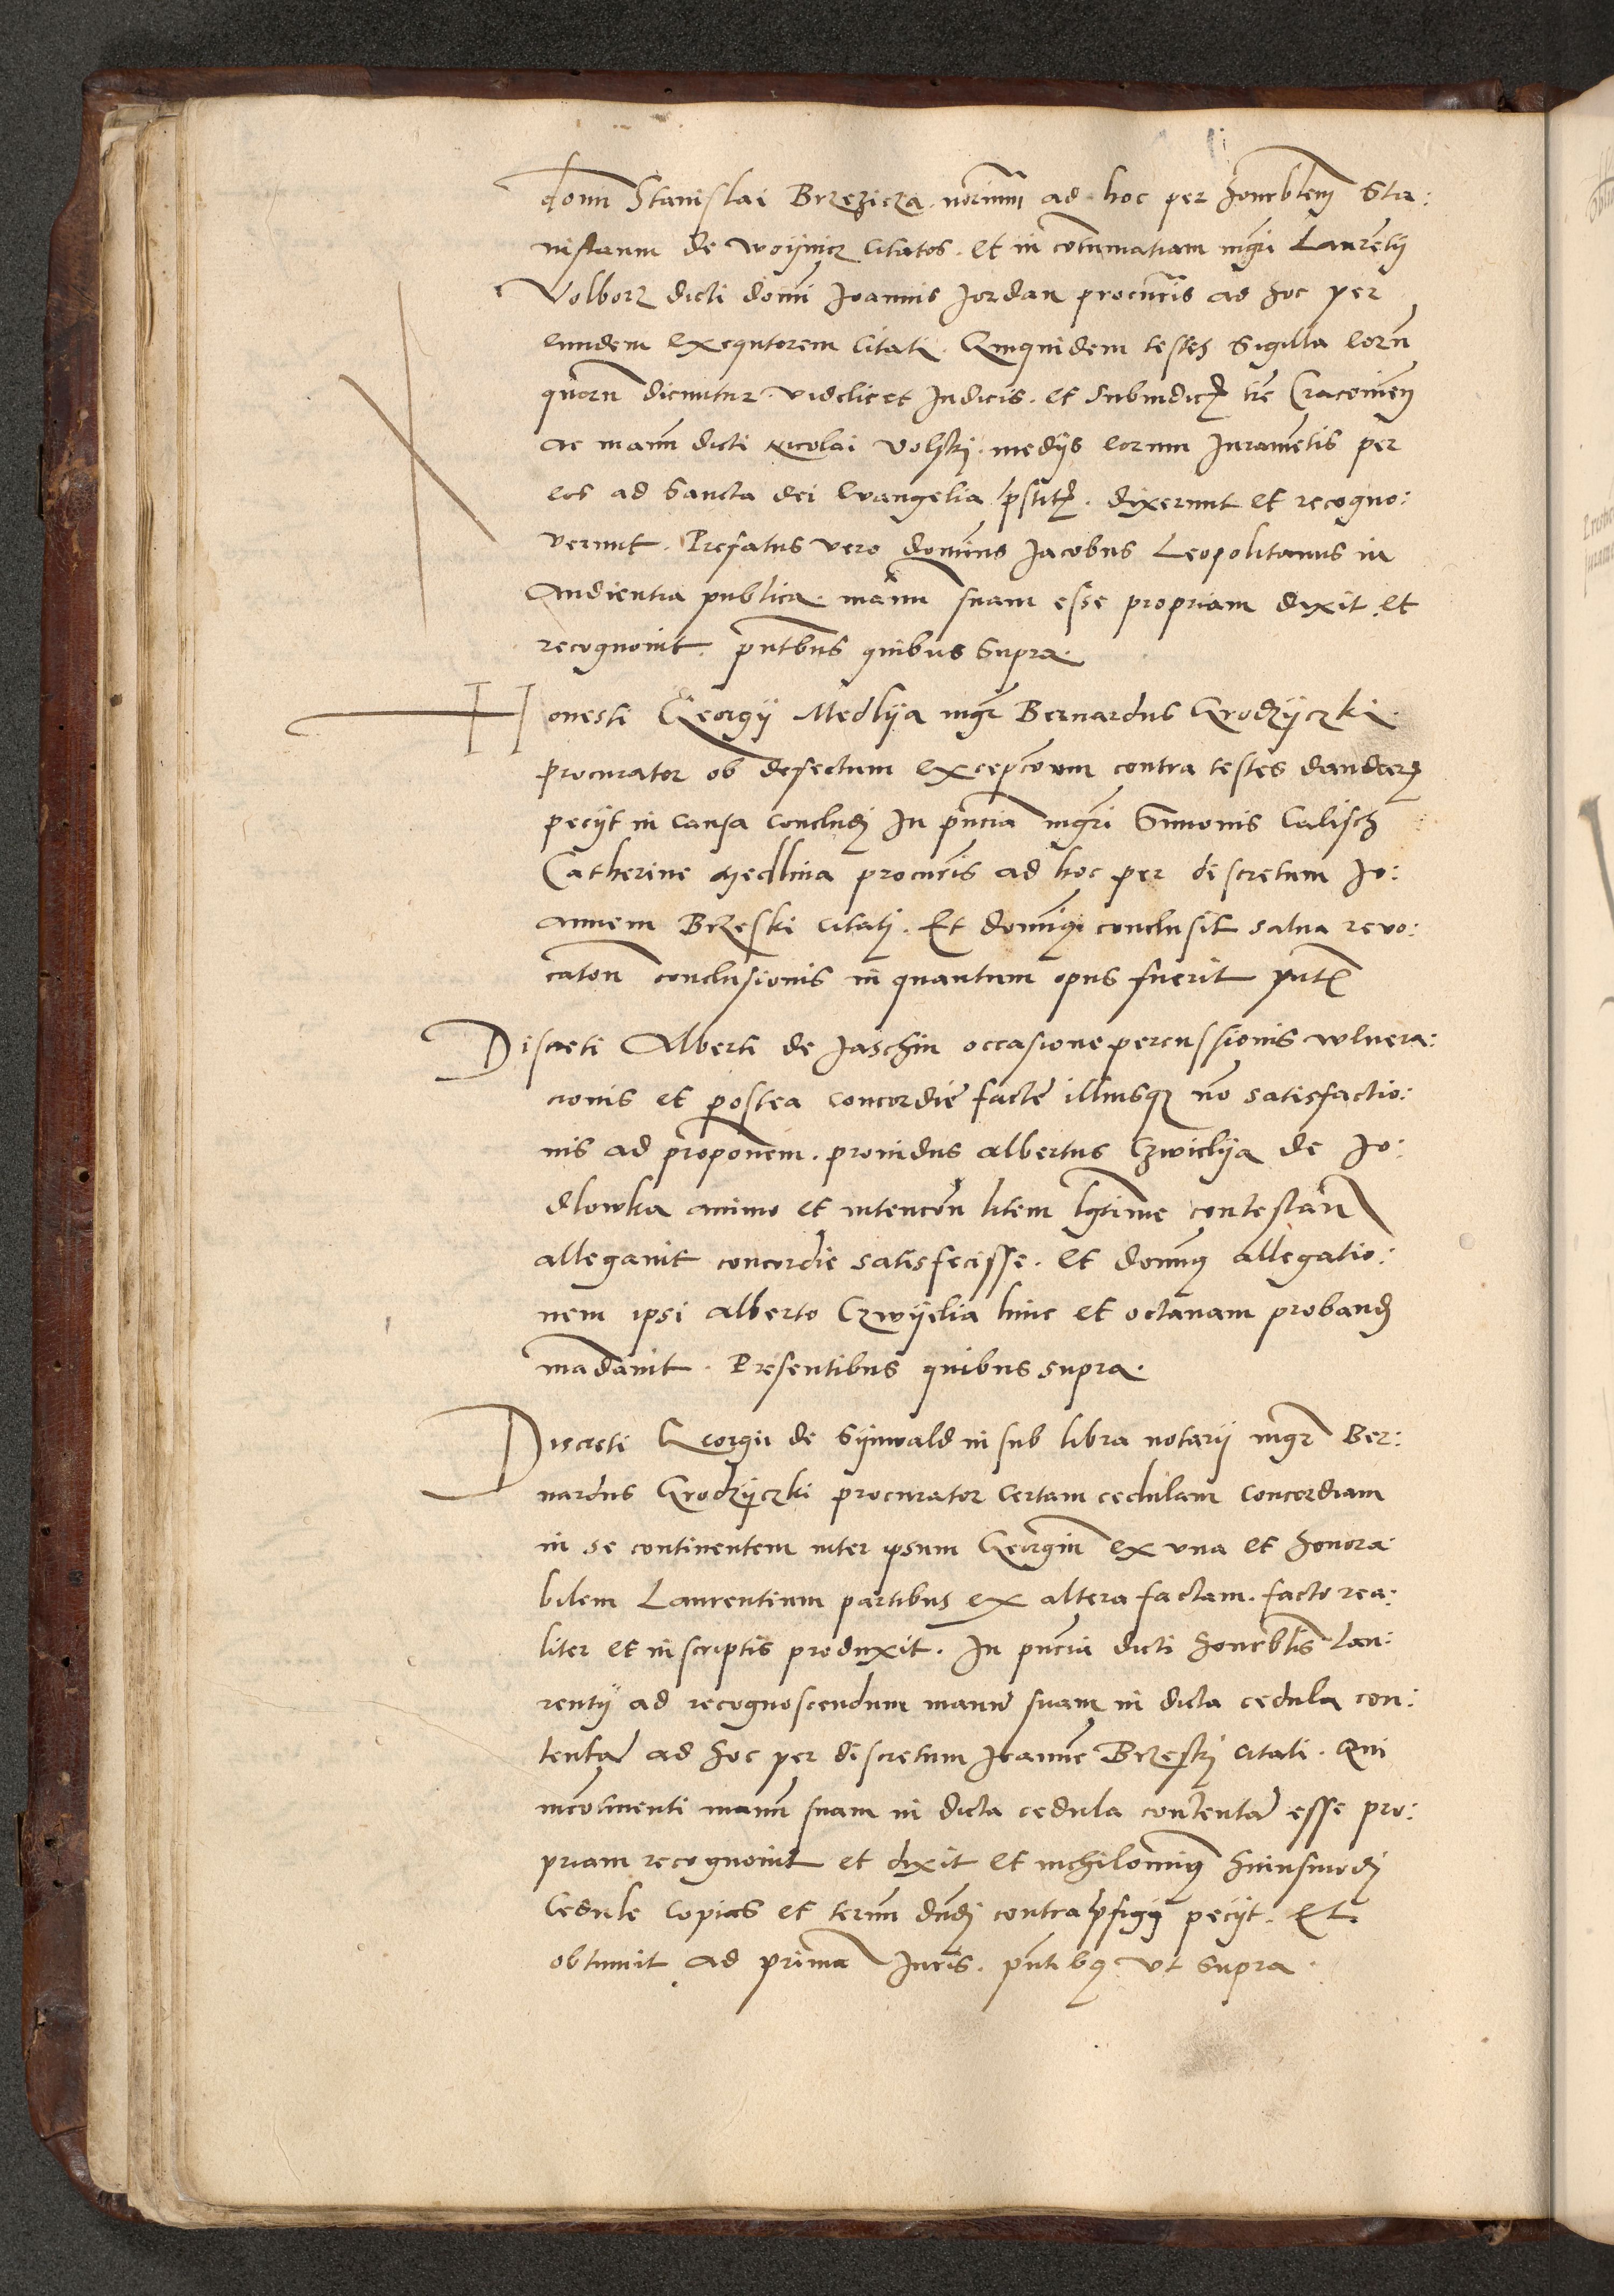 domi Stanislai Brzezicza. norimm ad hoc per honrblem Sta:
nislaum de Woynicz citatos. et in cotumatiam mgri Laurētij
Volborz dicti domi Joannis Jordan procuris ad hoc per
eundem exequtorem citati. Quiquidem testes Sigilla eorū
quorū dicuntur. videlicet Judicis. et Subiudicis tre Cracovieñ
ac manū dicti Nicolai Volski. medijs eorum Juramētis per
eos ad Sancta dei Evangelia pstitis. dixerunt et recogno:
verunt. Prefatus vero dominus Jacobus Leopolitanus in
Audientia publica. manū suam esse propriam dixit et
recognovit. pntbus quibus Supra.
Honesti Georgij Medlya mgr Bernardus Grodzyczki
procurator ob defectum excepcōnum contra testes dandarum
pecijt in causa concludi In pncia mgri Simonis Calisch
Catherine Medlina procuris ad hoc per discretum Jo:
annem Brzeski citati. Et dominus conclusit salva revo:
catōn conclusionis in quantum opus fuerit pntibus
Discreti Alberti de Jaschin occasione percussionis wlnera:
cionis et postea concordie facte illiusque nō satisfactio:
nis ad proponem. providus albertus Czwiclya de Jo:
dlowka animo et intencōn litem lgtime contestan
allegavit concordie satisfecisse. et dominus allegatio:
nem ipsi alberto Czwyclia hinc et octavam proband
madavit. Presentibus quibus supra.
Discreti Georgii de Synwald in sub libra notarij mgr Ber:
nardus Grodzyczki procurator certam cedulam concordiam
in se continentem inter ipsum Georgiū ex una et honora
bilem Laurentium partibus ex altera factam. facto rea:
liter et in scriptis produxit. In pncia dicti honrblis Lau:
rentij ad recognoscendum manū suam in dicta cedula con:
tentā ad hoc per discretum Joannē Brzeski citati. Qui
incōtinenti manū suam in dicta cedula contentā esse pro:
priam recognovit et dixit et nichilominus huiusmodi
Cedule copias et termī dndi contra pfigi pecijt. Et
obtinuit ad primā Juris. pntibus ut supra.